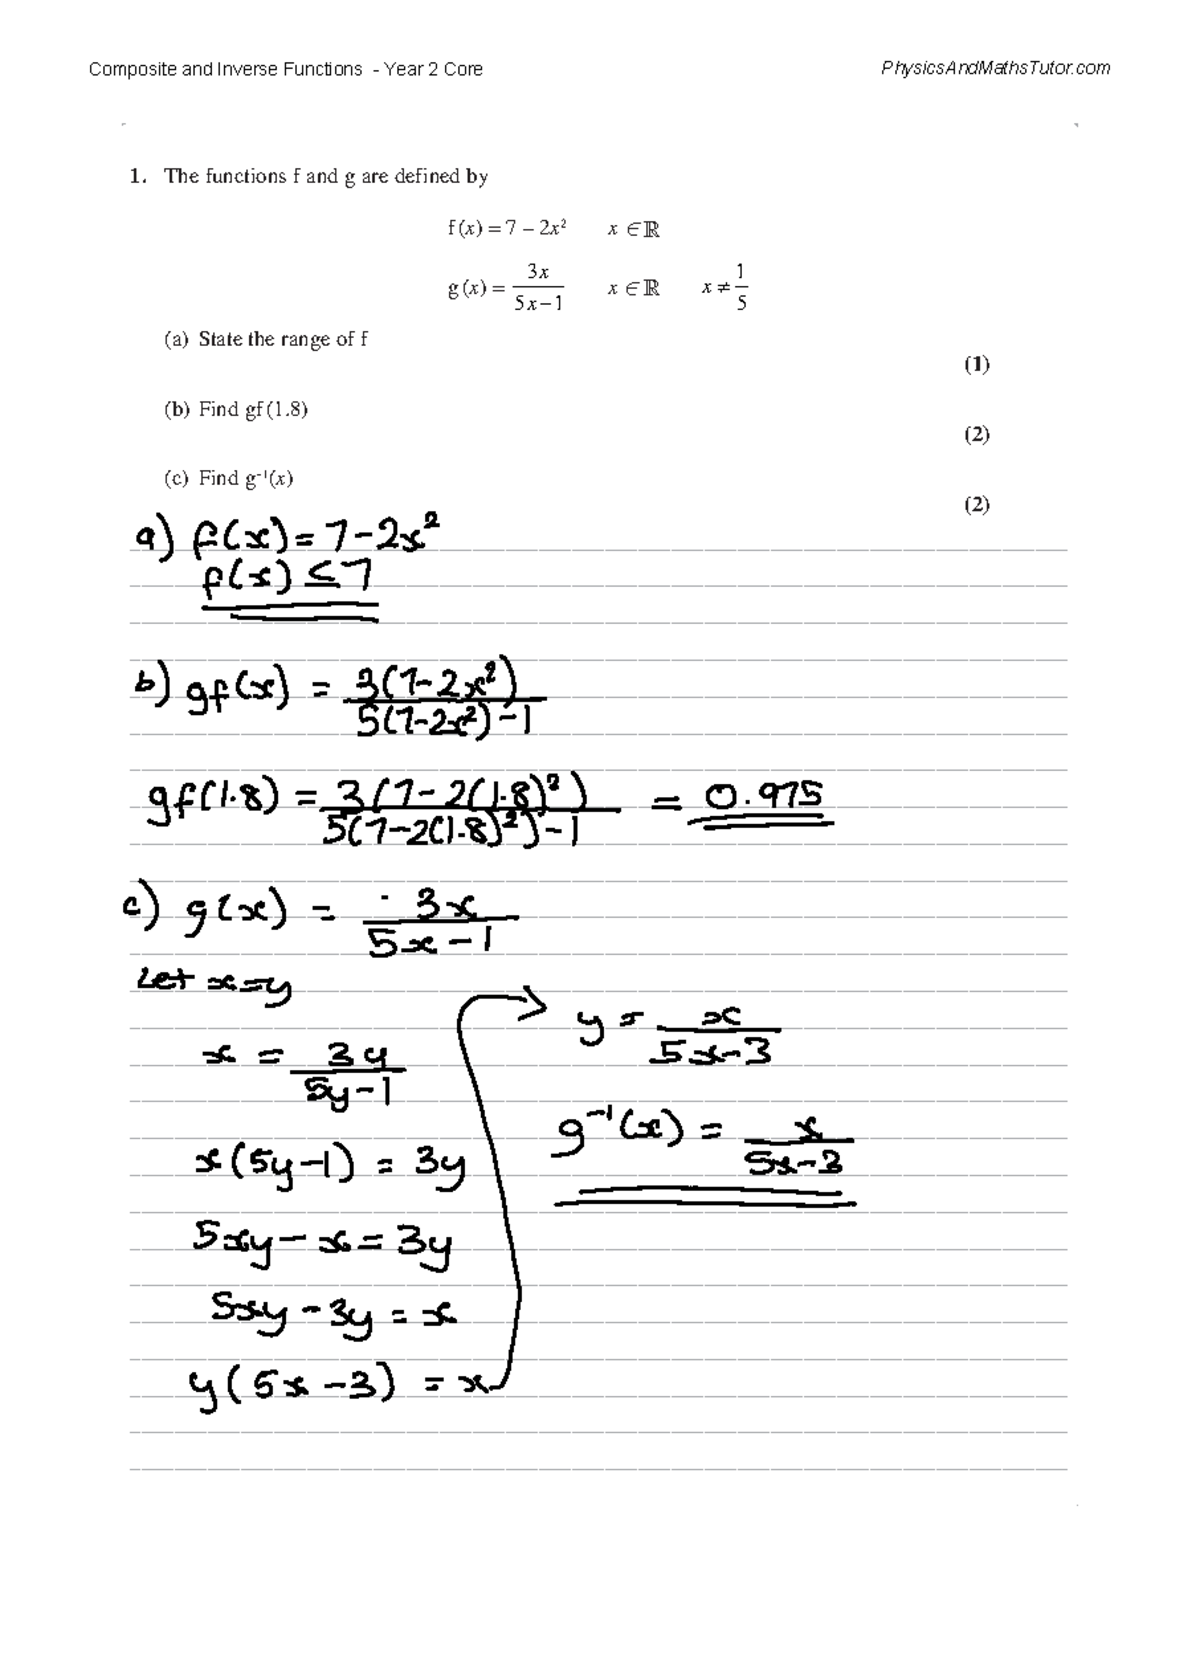 Composite and Inverse Functions - Year 2 Core
PhysicsAndMathsTutor.com
1. The functions f and g are defined by
f(x) = 7 – 2x² x ∈ ℝ
g(x) = 3x / 5x – 1 x ∈ ℝ x ≠ 1/5
(a) State the range of f
(1)
(b) Find gf(1.8)
(2)
(c) Find g⁻¹(x)
(2)
a) f(x) = 7 - 2x²
f(x) ≤ 7
b) gf(x) = 3(7 - 2x²) / 5(7 - 2x²) - 1
gf(1.8) = 3(7 - 2(1.8)²) / 5(7 - 2(1.8)²) - 1 = 0.975
c) g(x) = 3x / 5x - 1
Let x = y
x = 3y / 5y - 1
x(5y - 1) = 3y
5xy - x = 3y
5xy - 3y = x
y(5x - 3) = x
y = x / 5x - 3
g⁻¹(x) = x / 5x - 3